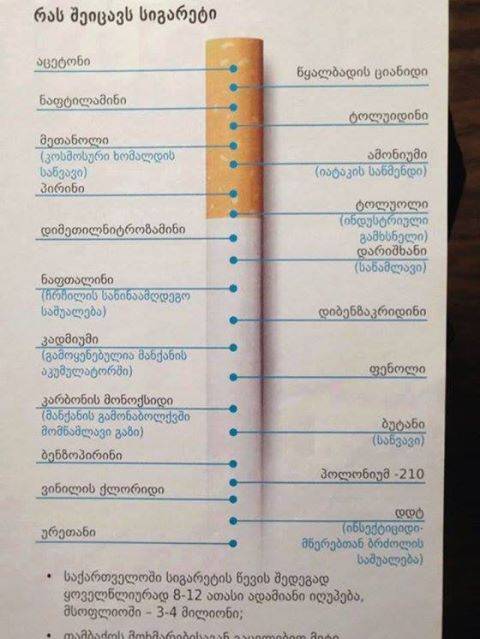 რას შეიცავს სიგარეტი
აცეტონი
წყალბადის ციანიდი
ნაფტილამინი
ტოლუიდინი
მეთანოლი
(კოსმოსური ხომალდის
საწვავი)
ამონიუმი
(იატაკის საწმენდი)
პირინი
ტოლუოლი
(ინდუსტრიული
გამხსნელი)
დიმეთილნიტროზამინი
დარიშხანი
(საწამლავი)
ნაფთალინი
(ჩრჩილის საწინააღმდეგო
საშუალება)
დიბენზაკრიდინი
კადმიუმი
(გამოყენებულია მანქანის
აკუმულატორში)
ფენოლი
კარბონის მონოქსიდი
(მანქანის გამონაბოლქვში
მომწამლავი გაზი)
ბუტანი
(საწვავი)
ბენზოპირინი
პოლონიუმ -210
ვინილის ქლორიდი
დდტ
(ინსექტიციდი-
მწერებთან ბრძოლის
საშუალება)
ურეთანი
• საქართველოში სიგარეტის წევის შედეგად
ყოველწლიურად 8-12 ათასი ადამიანი იღუპება,
მსოფლიოში – 3-4 მილიონი;